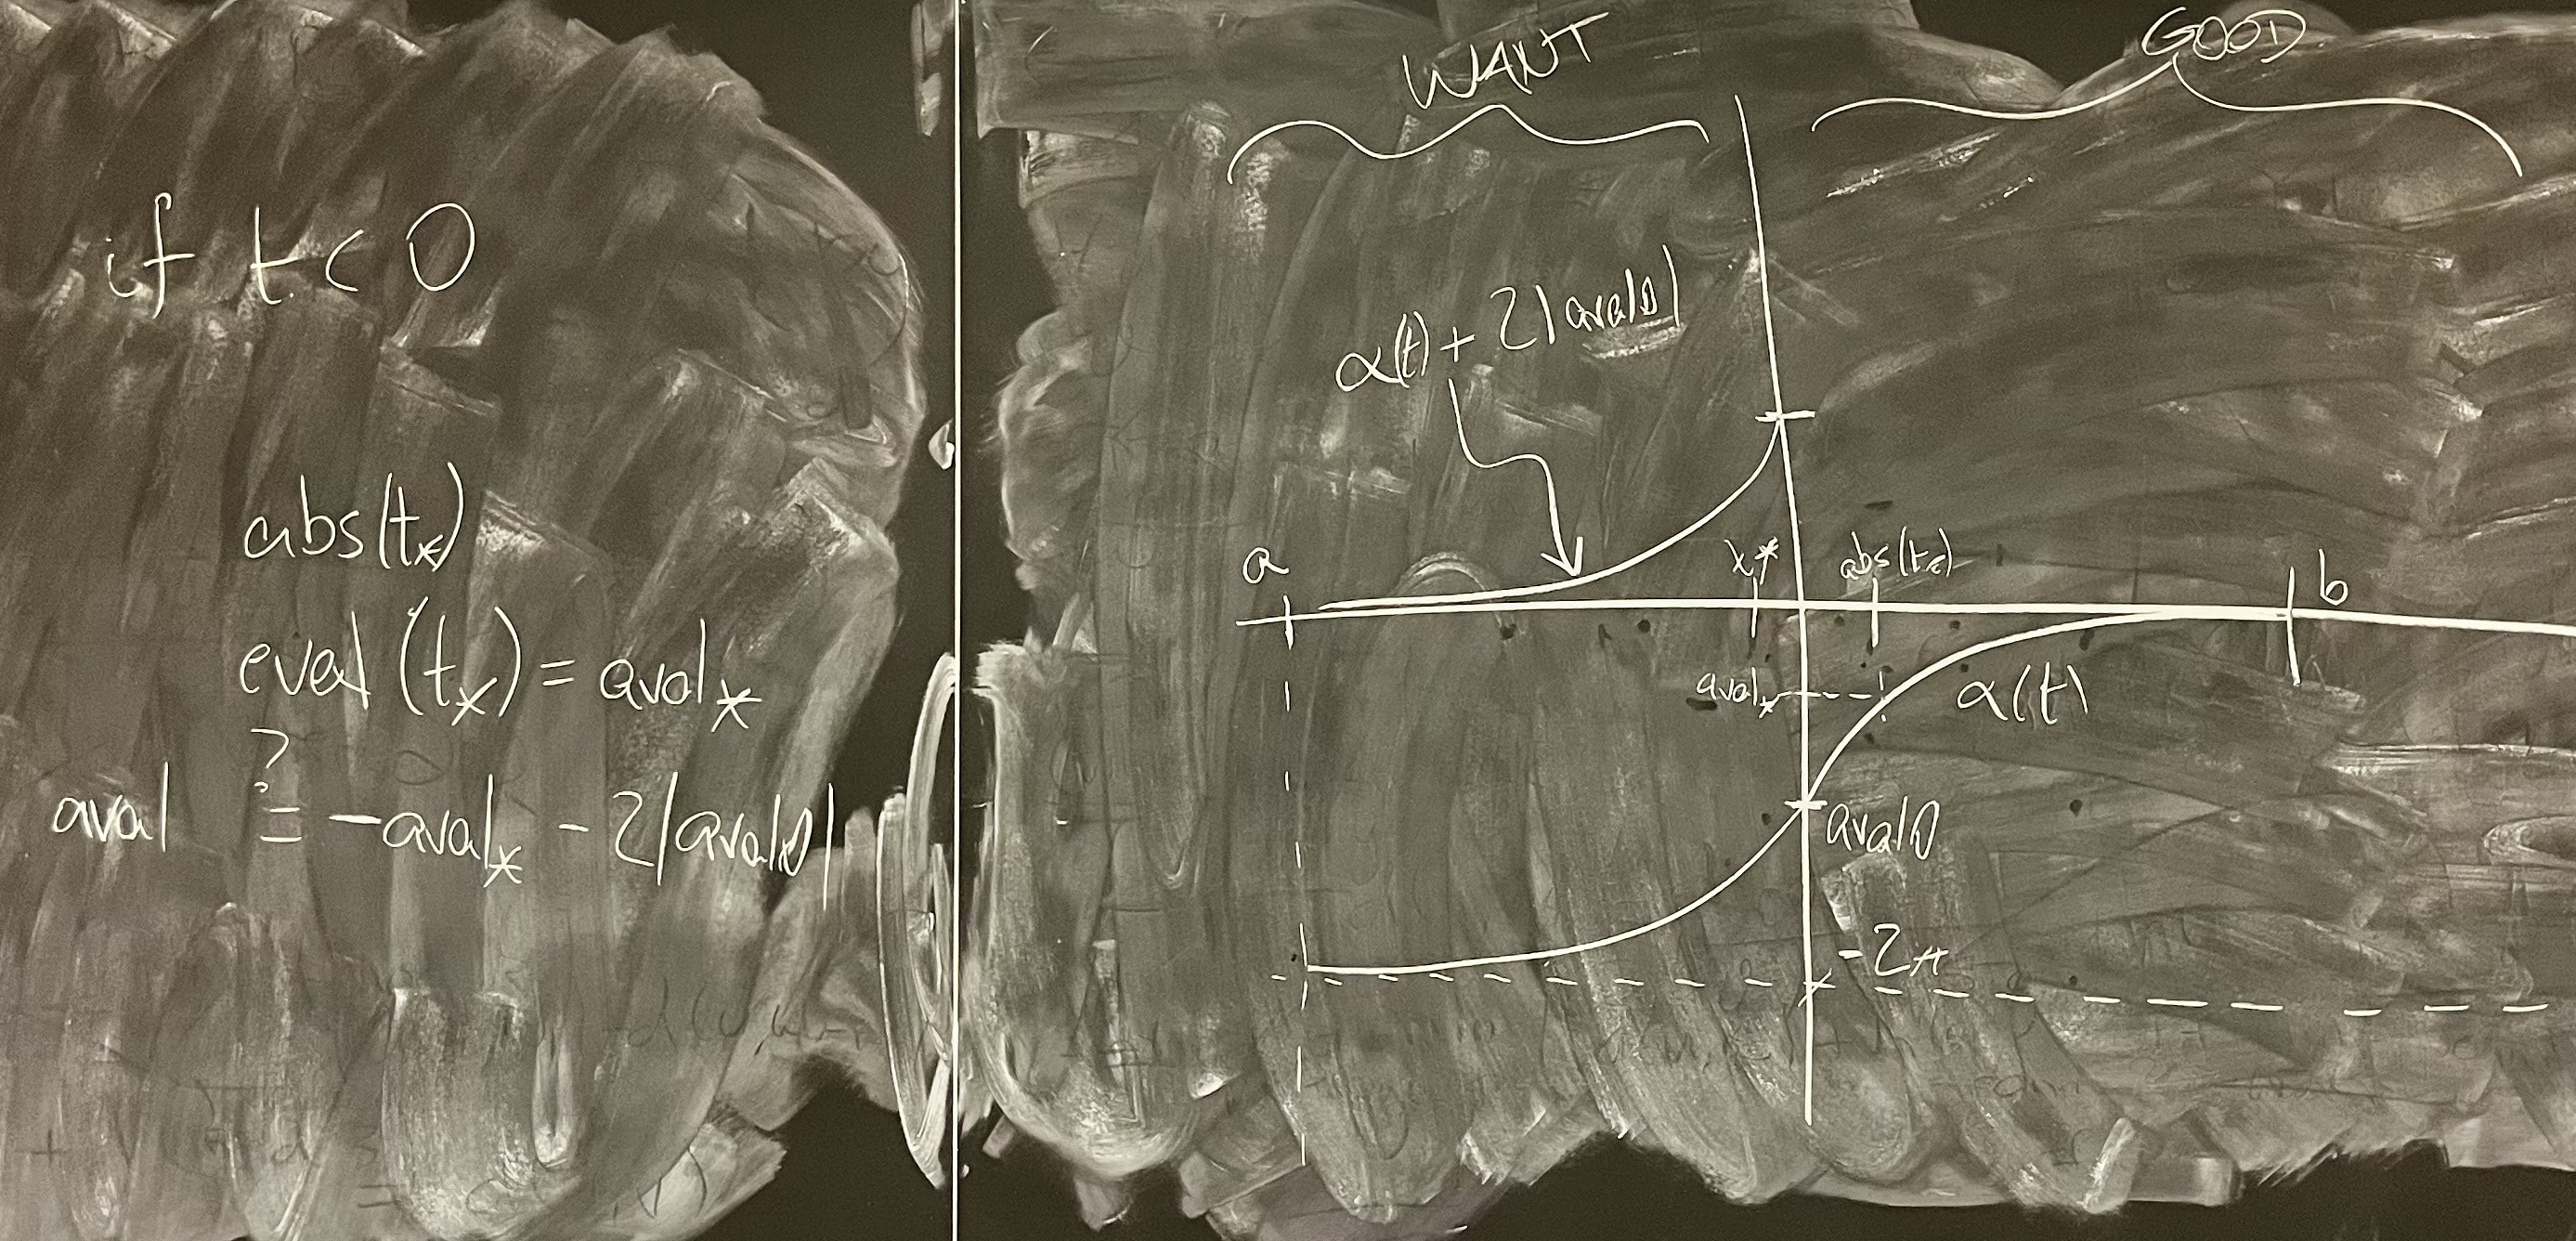 if t < 0
abs(t*)
eval (t*) = aval*
?
aval = -aval* - 2|aval0|
WANT
GOOD
α(t) + 2|aval0|
a
t*
abs(t*)
b
aval*
α(t)
aval0
-2π